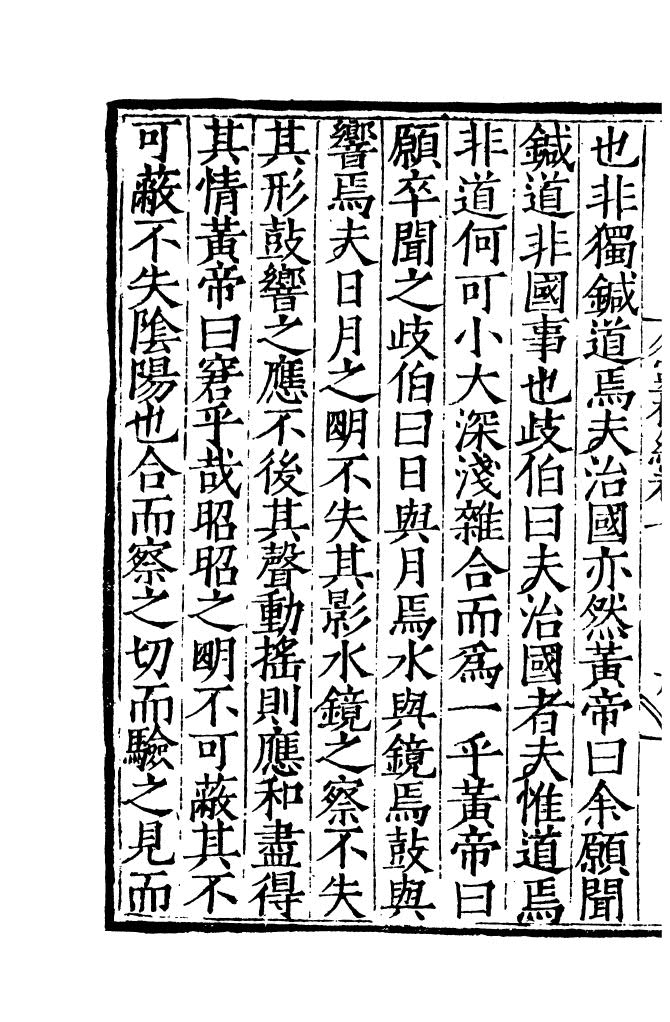 也非獨鍼道焉夫治國亦然黃帝曰余願聞
鍼道非國事也歧伯曰夫治國者夫惟道焉
非道何可小大深淺雜合而爲一乎黃帝曰
願卒聞之歧伯曰日與月焉水與鏡焉鼓與
響焉夫日月之明不失其影水鏡之察不失
其形鼓響之應不後其聲動搖則應和盡得
其情黃帝曰窘乎哉昭昭之明不可蔽其不
可蔽不失陰陽也合而察之切而驗之見而